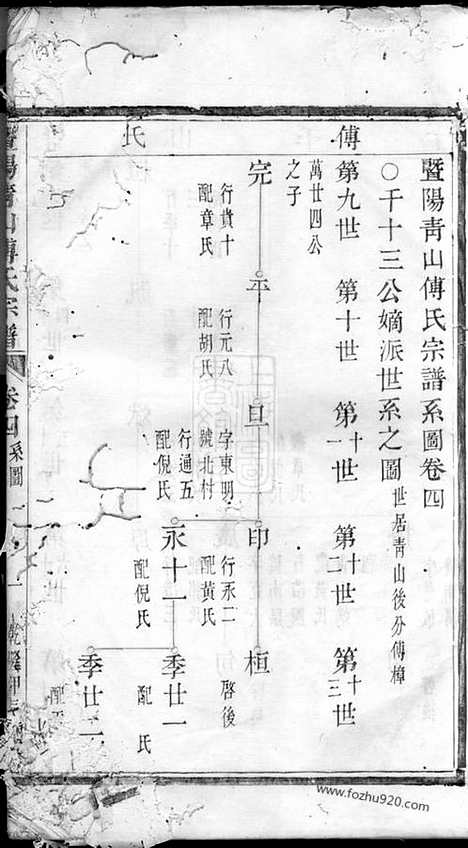 傅氏
暨陽青山傅氏宗譜系圖卷四
〇千十三公嫡派世系之圖 世居青山後分傅樟
第九世 第十世 第十一世 第十二世 第十三世
萬廿四公之子
完 平 旦 印 桓
行貴十 配章氏
行元八 配胡氏
字東明 號北村 行通五 配倪氏
行永二 配黃氏
啓後
永十 配倪氏
季廿一 配 氏
季廿二 配
暨陽青山傅氏宗譜 卷四 系圖 乾隆
www.fozhu920.com